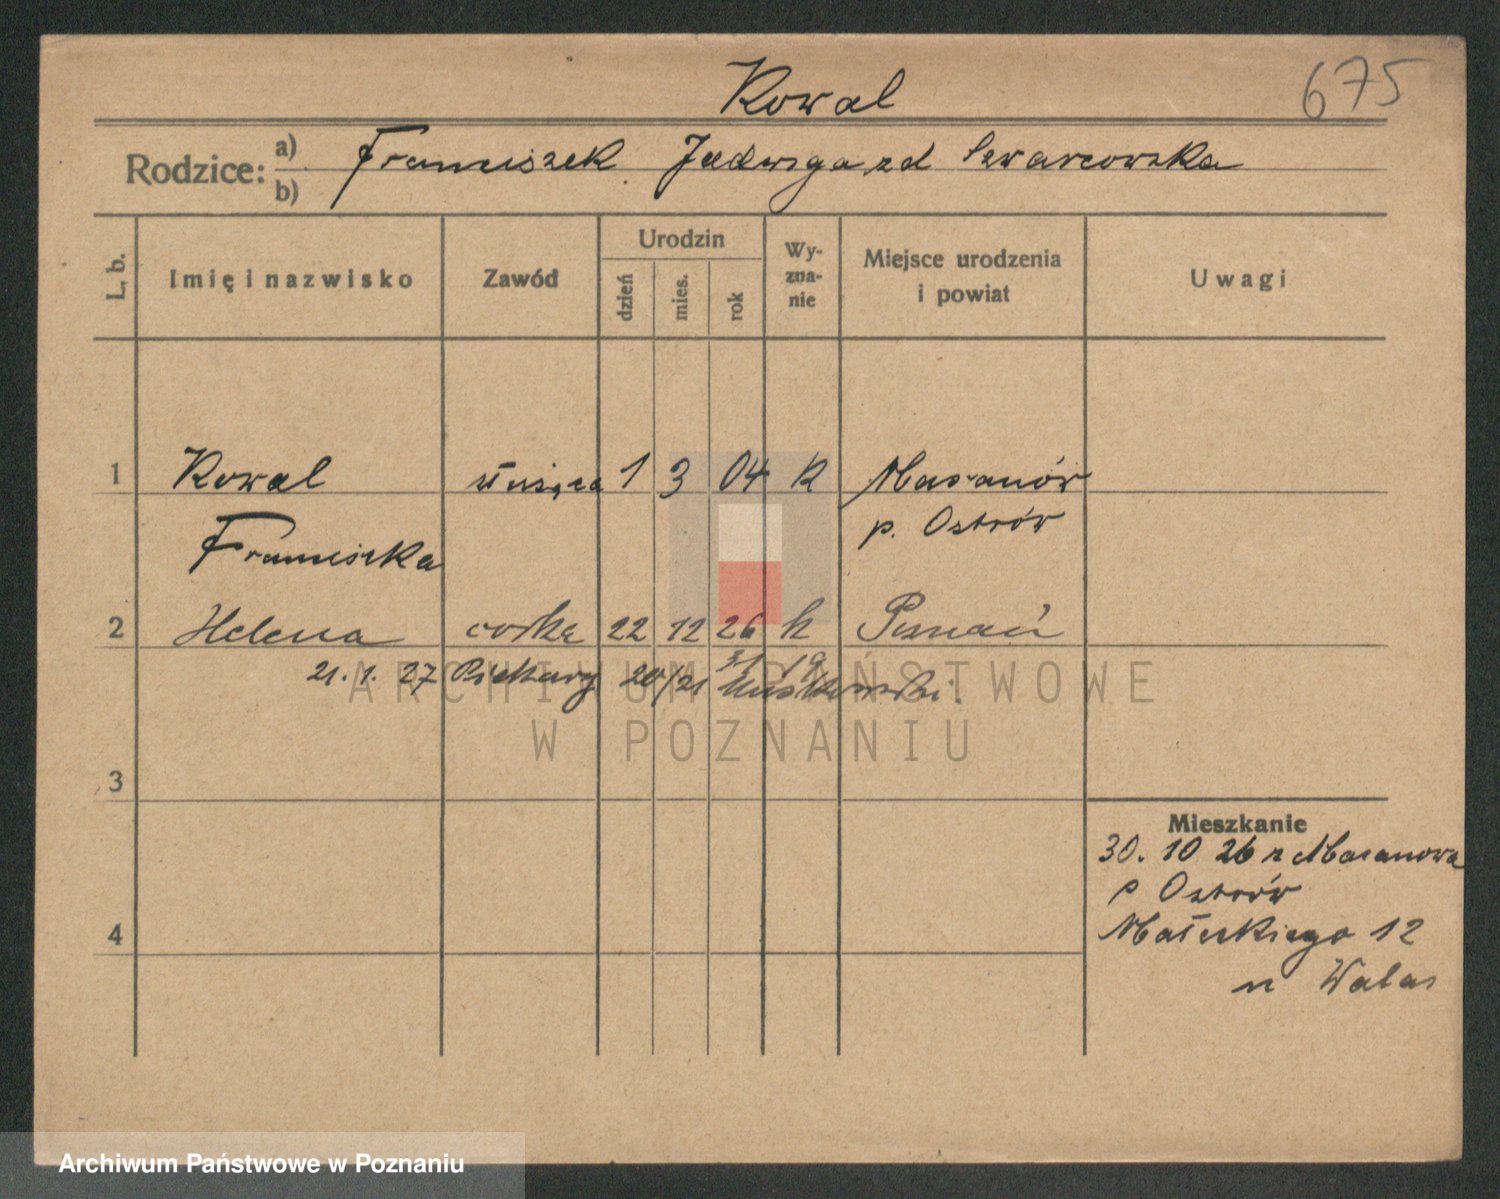 Kowal 675
Rodzice: a) b) Franciszek Jadwiga zd Szwarcowska
L. b. Imię i nazwisko Zawód Urodzin dzień mies. rok Wy-zna-nie Miejsce urodzenia i powiat Uwagi
1 Kowal służąca 1 3 04 K Masanów
Franciszka p. Ostrów
2 Helena córka 22 12 26 k Poznań
21. 1. 27 Piekary 20/21
ARCHIWUM PAŃSTWOWE
W POZNANIU
3
Mieszkanie
30. 10 26 z Masanowa
p Ostrów
4 Małeckiego 12
u Walas
Archiwum Państwowe w Poznaniu